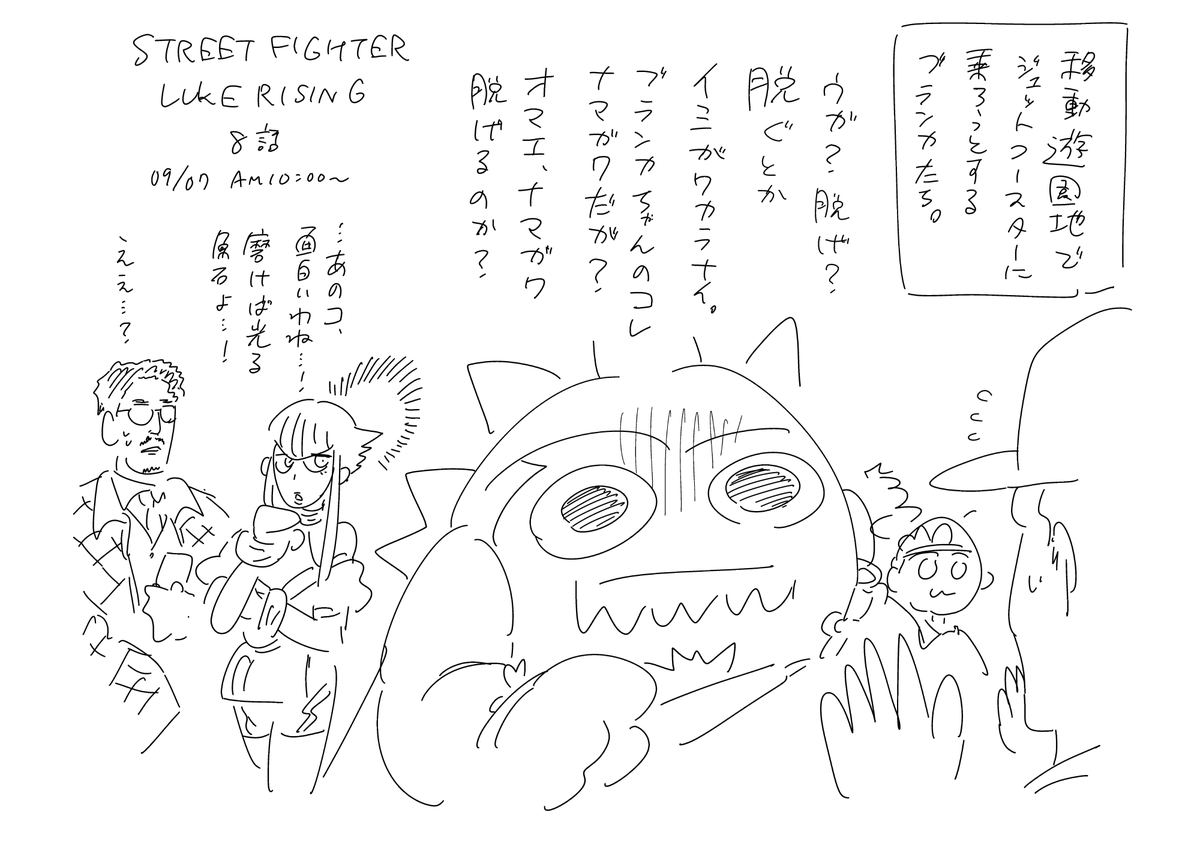 移動遊園地で
ジェットコースターに
乗ろっとする
ブランカたち。
ウガ?脱げ?
脱ぐとか
イミがワカラナイ。
ブランカちゃんのコレ
ナマガワだが?
オマエ、ナマガワ
脱げるのか?
STREET FIGHTER
LUKE RISING
8話
09/07 AM10:00〜
…あのコ、
面白いわね…!
磨けば光る
原石よ…!
、ええ…?